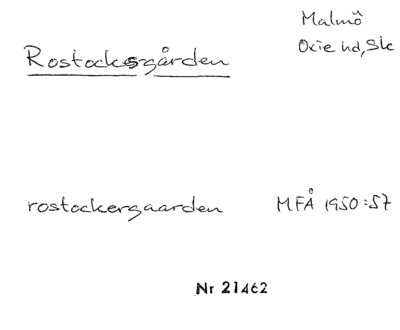 Malmö
Oxie hd, Sk
Rostocksgården
rostockergaarden MFÅ 1950:57
Nr 21462